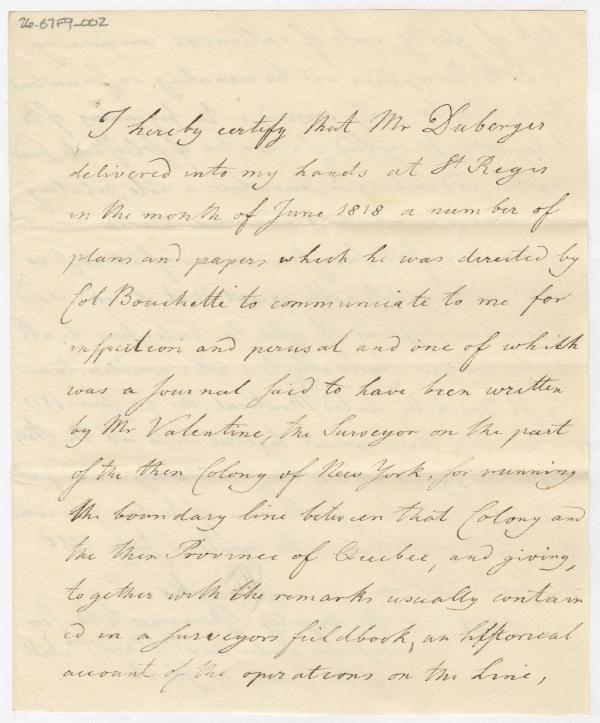 26-87F9-002
I hereby certify that Mr Duberger
delivered into my hands at St Regis
in the month of June 1818 a number of
plans and papers which he was directed by
Col Bouchette to communicate to me for
inspection and perusal and one of which
was a Journal said to have been written
by Mr Valentine, the Surveyor on the part
of the then Colony of New York, for running
the boundary line between that Colony and
the then Province of Quebec, and giving,
together with the remarks usually contain
ed in a surveyors fieldbook, an historical
account of the operations on the Line,